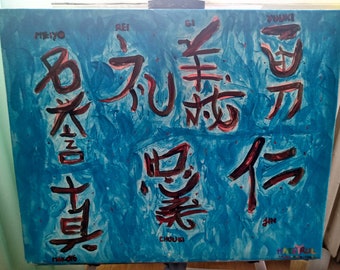 MEIYO REI GI YUUKI
名誉 礼 義 勇
真 忠義 仁
JIN